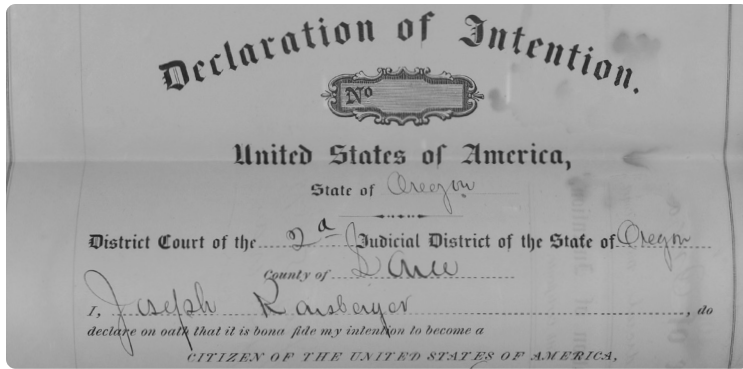 Declaration of Intention.
No
United States of America,
State of Oregon
District Court of the 2d Judicial District of the State of Oregon
County of Lane
I, Joseph Ransberger, do
declare on oath that it is bona fide my intention to become a
CITIZEN OF THE UNITED STATES OF AMERICA,